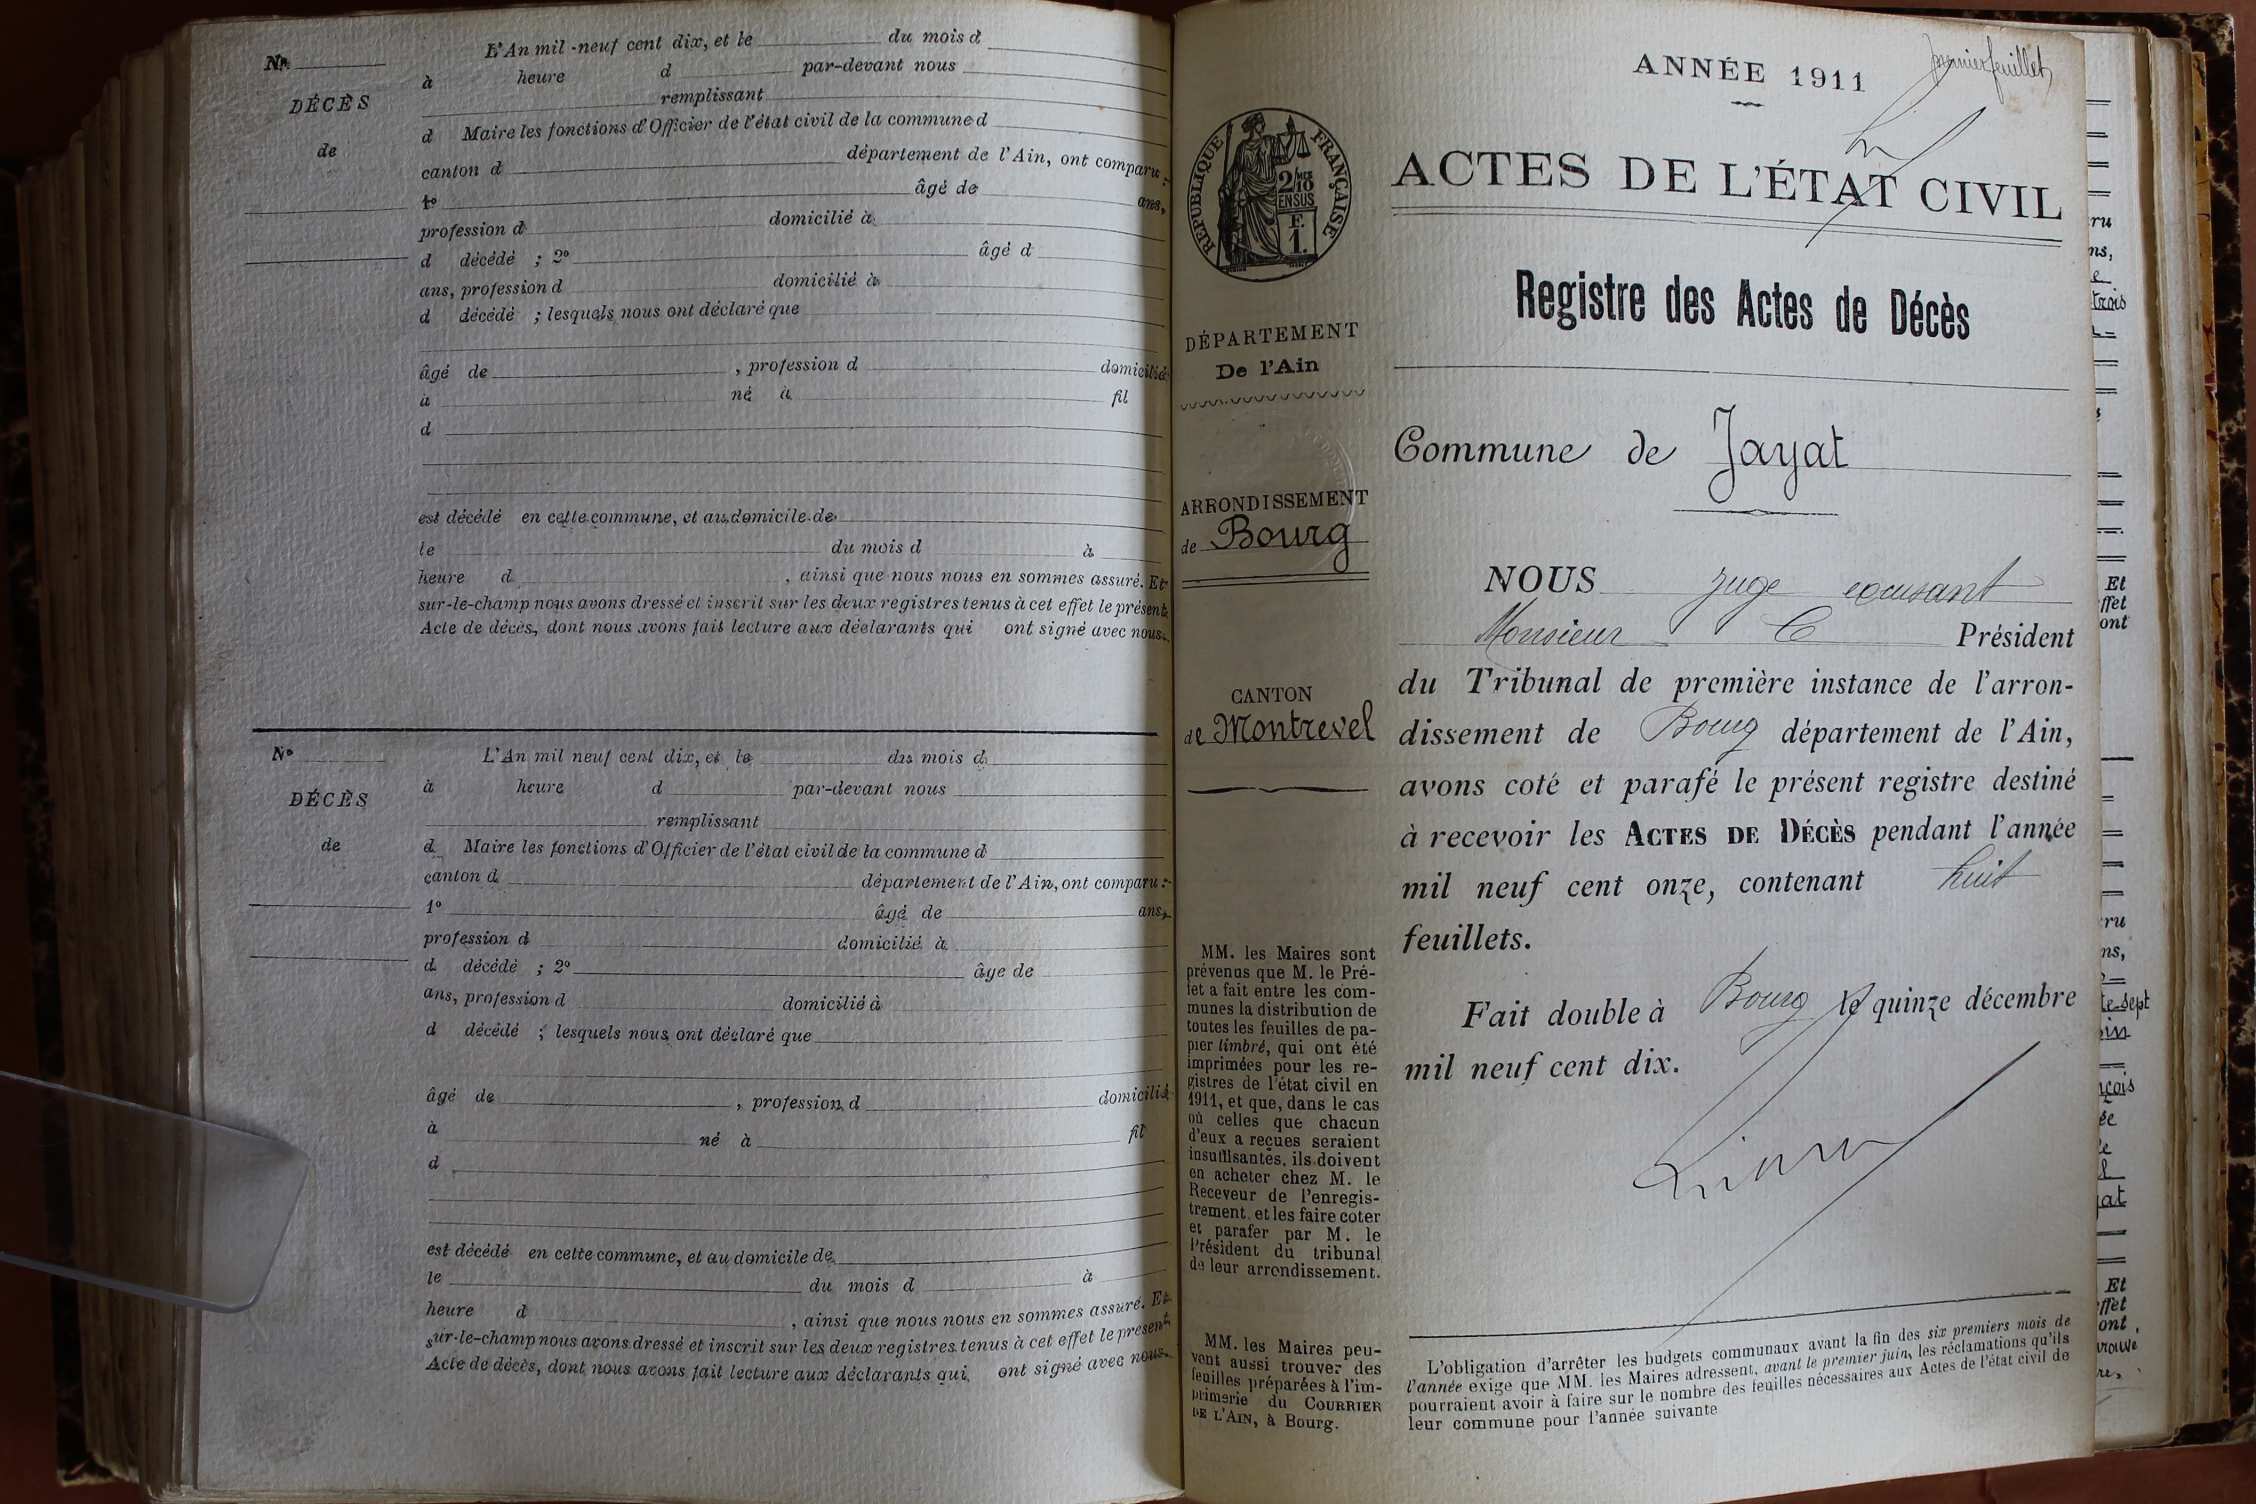 L'An mil-neuf cent dix, et le du mois d
No
à heure d par-devant nous
DÉCÈS
remplissant
d Maire les fonctions d'Officier de l'état civil de la commune d
de
canton d département de l'Ain, ont comparu :
1o âgé de ans,
profession d domicilié à
d décédé ; 2o âgé d
ans, profession d domicilié à
d décédé ; lesquels nous ont déclaré que
âgé de , profession d domicilié
à né à fil
d
est décédé en cette commune, et au domicile de
le du mois d à
heure d , ainsi que nous nous en sommes assuré. Et
sur-le-champ nous avons dressé et inscrit sur les deux registres tenus à cet effet le présent
Acte de décès, dont nous avons fait lecture aux déclarants qui ont signé avec nous.
No L'An mil neuf cent dix, et le du mois d
à heure d par-devant nous
DÉCÈS
remplissant
de d Maire les fonctions d'Officier de l'état civil de la commune d
canton d département de l'Ain, ont comparu :
1o âgé de ans,
profession d domicilié à
d décédé ; 2o âge de
ans, profession d domicilié à
d décédé ; lesquels nous ont déclaré que
âgé de , profession d domicilié
à né à fil
d
est décédé en cette commune, et au domicile de
le du mois d à
heure d , ainsi que nous nous en sommes assuré. Et
sur-le-champ nous avons dressé et inscrit sur les deux registres tenus à cet effet le présent
Acte de décès, dont nous avons fait lecture aux déclarants qui ont signé avec nous.
RÉPUBLIQUE FRANÇAISE
2/10
EN SUS
F.
1.
DÉPARTEMENT
De l'Ain
ARRONDISSEMENT
de Bourg
CANTON
de Montrevel
MM. les Maires sont
prévenus que M. le Pré-
fet a fait entre les com-
munes la distribution de
toutes les feuilles de pa-
pier timbré, qui ont été
imprimées pour les re-
gistres de l'état civil en
1911, et que, dans le cas
où celles que chacun
d'eux a reçues seraient
insuffisantes, ils doivent
en acheter chez M. le
Receveur de l'enregis-
trement, et les faire coter
et parafer par M. le
Président du tribunal
de leur arrondissement.
MM. les Maires peu-
vent aussi trouver des
feuilles préparées à l'im-
primerie du COURRIER
DE L'AIN, à Bourg.
premier feuillet
ANNÉE 1911
ACTES DE L'ÉTAT CIVIL
Registre des Actes de Décès
Commune de Jayat
NOUS Juge excusant
Monsieur Président
du Tribunal de première instance de l'arron-
dissement de Bourg département de l'Ain,
avons coté et parafé le présent registre destiné
à recevoir les ACTES DE DÉCÈS pendant l'année
mil neuf cent onze, contenant huit
feuillets.
Fait double à Bourg le quinze décembre
mil neuf cent dix.
L'obligation d'arrêter les budgets communaux avant la fin des six premiers mois de
l'année exige que MM. les Maires adressent, avant le premier juin, les réclamations qu'ils
pourraient avoir à faire sur le nombre des feuilles nécessaires aux Actes de l'état civil de
leur commune pour l'année suivante